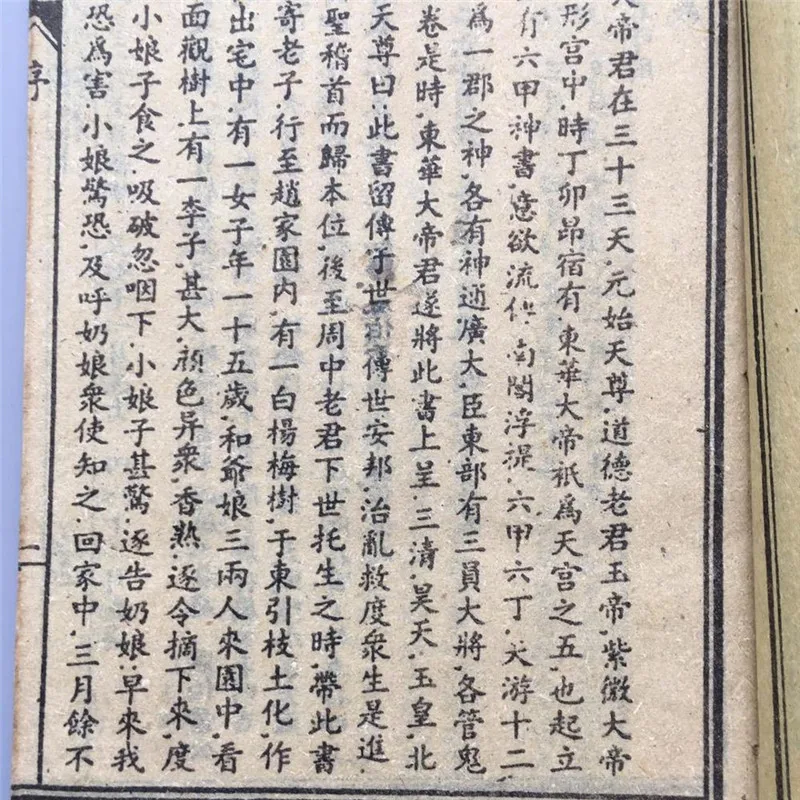 大帝君在三十三天.元始天尊.道德老君玉帝.紫微大帝
形宮中.時丁卯昴宿有.東華大帝祇爲天宮之五.也起立
有六甲神書.意欲流傳.南閻浮提.六甲六丁.天游十二
爲一郡之神.各有神通廣大.臣東部有三員大將.各管鬼
卷是時.東華大帝君遂將此書上呈.三清.昊天.玉皇.北
天尊曰.此書留傳于世 傳世安邦.治亂救度衆生是進.
聖稽首而歸本位.後至周中老君下世托生之時.帶此書
寄老子.行至趙家園内.有一白楊梅樹.于東引枝土化.作
出宅中.有一女子年一十五歲.和爺娘三兩人來園中.看
面觀樹上有一李子.甚大.顔色异衆.香熟.逐令摘下來.度
小娘子食之.吸破忽咽下.小娘子甚驚.逐告奶娘.早來我
恐爲害.小娘驚恐.及呼奶娘衆使知之.回家中.三月餘不
序
二